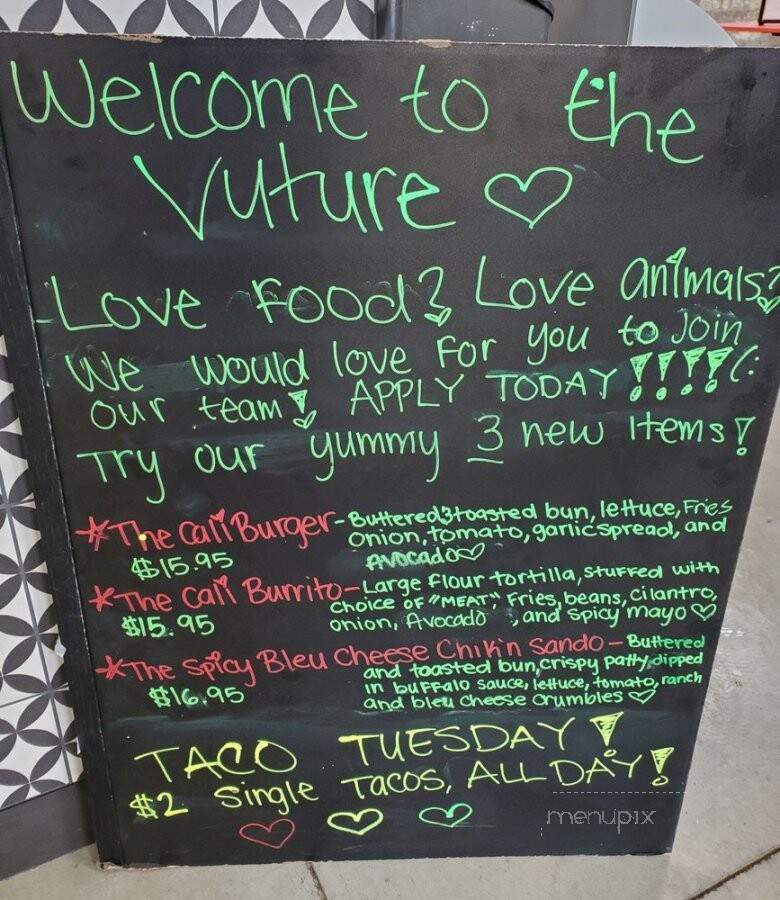 Welcome to the
Vuture ♡
Love Food? Love animals?
We would love for you to Join
our team! APPLY TODAY !!!! (:
Try our yummy 3 new items!
*The Cali Burger - Buttered & toasted bun, lettuce, Fries
Onion, tomato, garlic spread, and
$15.95 Avocado ♡
*The Cali Burrito - Large flour tortilla, stuffed with
choice of "MEAT", Fries, beans, cilantro,
$15.95 onion, Avocado , and spicy mayo ♡
*The Spicy Bleu Cheese Chik'n Sando - Buttered
and toasted bun, crispy patty, dipped
$16.95 in buffalo sauce, lettuce, tomato, ranch
and bleu cheese crumbles ♡
TACO TUESDAY!
$2 Single Tacos, ALL DAY!
menupix